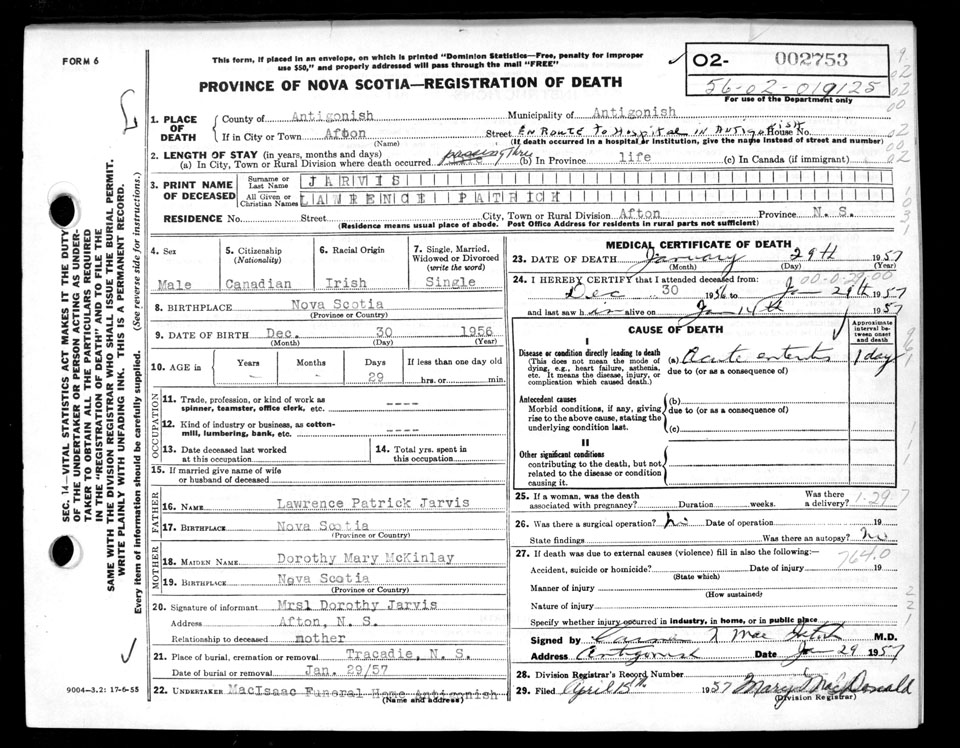 FORM 6
This form, if placed in an envelope, on which is printed "Dominion Statistics—Free, penalty for improper
use $50," and properly addressed will pass through the mail "FREE"
PROVINCE OF NOVA SCOTIA—REGISTRATION OF DEATH
02- 002753
56-02-019125
For use of the Department only
1. PLACE OF DEATH
County of Antigonish Municipality of Antigonish
If in City or Town Afton Street EN ROUTE TO HOSPITAL IN ANTIGONISH House No.
(Name) (If death occurred in a hospital or institution, give the name instead of street and number)
2. LENGTH OF STAY (in years, months and days)
(a) In City, Town or Rural Division where death occurred passing thru (b) In Province life (c) In Canada (if immigrant)
3. PRINT NAME OF DECEASED
Surname or Last Name JARVIS
All Given or Christian Names LAWRENCE PATRICK
RESIDENCE No. Street City, Town or Rural Division Afton Province N. S.
(Residence means usual place of abode. Post Office Address for residents in rural parts not sufficient)
4. Sex
Male
5. Citizenship (Nationality)
Canadian
6. Racial Origin
Irish
7. Single, Married, Widowed or Divorced (write the word)
Single
8. BIRTHPLACE Nova Scotia
(Province or Country)
9. DATE OF BIRTH Dec. 30 1956
(Month) (Day) (Year)
10. AGE in Years Months Days If less than one day old
- - 29 hrs. or min.
OCCUPATION
11. Trade, profession, or kind of work as
spinner, teamster, office clerk, etc. ----
12. Kind of industry or business, as cotton-
mill, lumbering, bank, etc. ----
13. Date deceased last worked
at this occupation
14. Total yrs. spent in
this occupation
15. If married give name of wife
or husband of deceased
FATHER
16. NAME Lawrence Patrick Jarvis
17. BIRTHPLACE Nova Scotia
(Province or Country)
MOTHER
18. MAIDEN NAME Dorothy Mary McKinlay
19. BIRTHPLACE Nova Scotia
(Province or Country)
20. Signature of informant Mrsl Dorothy Jarvis
Address Afton, N. S.
Relationship to deceased mother
21. Place of burial, cremation or removal Tracadie, N. S.
Date of burial or removal Jan. 29/57
22. UNDERTAKER MacIsaac Funeral Home Antigonish
(Name and address)
MEDICAL CERTIFICATE OF DEATH
23. DATE OF DEATH January 29th 1957
(Month) (Day) (Year)
24. I HEREBY CERTIFY that I attended deceased from:
00-0-29-00
Dec 30 1956 to Jan 29th 1957
and last saw him alive on Jan 14th 1957
CAUSE OF DEATH
Approximate interval between onset and death
I
Disease or condition directly leading to death
(This does not mean the mode of
dying, e.g., heart failure, asthenia,
etc. It means the disease, injury, or
complication which caused death.)
(a) Acute enteritis 1 day
due to (or as a consequence of)
Antecedent causes
Morbid conditions, if any, giving
rise to the above cause, stating the
underlying condition last.
(b)
due to (or as a consequence of)
(c)
II
Other significant conditions
contributing to the death, but not
related to the disease or condition
causing it.
25. If a woman, was the death
associated with pregnancy? Duration weeks. Was there a delivery?
1-29-7
26. Was there a surgical operation? no Date of operation 19
State findings Was there an autopsy? no
27. If death was due to external causes (violence) fill in also the following:—
764.0
Accident, suicide or homicide? Date of injury 19
(State which)
Manner of injury
(How sustained)
Nature of injury
Specify whether injury occurred in industry, in home, or in public place
Signed by M.D.
Address Antigonish Date Jan 29 1957
28. Division Registrar's Record Number
29. Filed April 15th 1957 Mary MacDonald
(Division Registrar)
SEC. 14—VITAL STATISTICS ACT MAKES IT THE DUTY
OF THE UNDERTAKER OR PERSON ACTING AS UNDER-
TAKER TO OBTAIN ALL THE PARTICULARS REQUIRED
IN THE "REGISTRATION OF DEATH" AND TO FILE THE
SAME WITH THE DIVISION REGISTRAR WHO SHALL ISSUE THE BURIAL PERMIT.
WRITE PLAINLY WITH UNFADING INK. THIS IS A PERMANENT RECORD.
Every item of information should be carefully supplied. (See reverse side for instructions.)
9004—3.2: 17-6-55